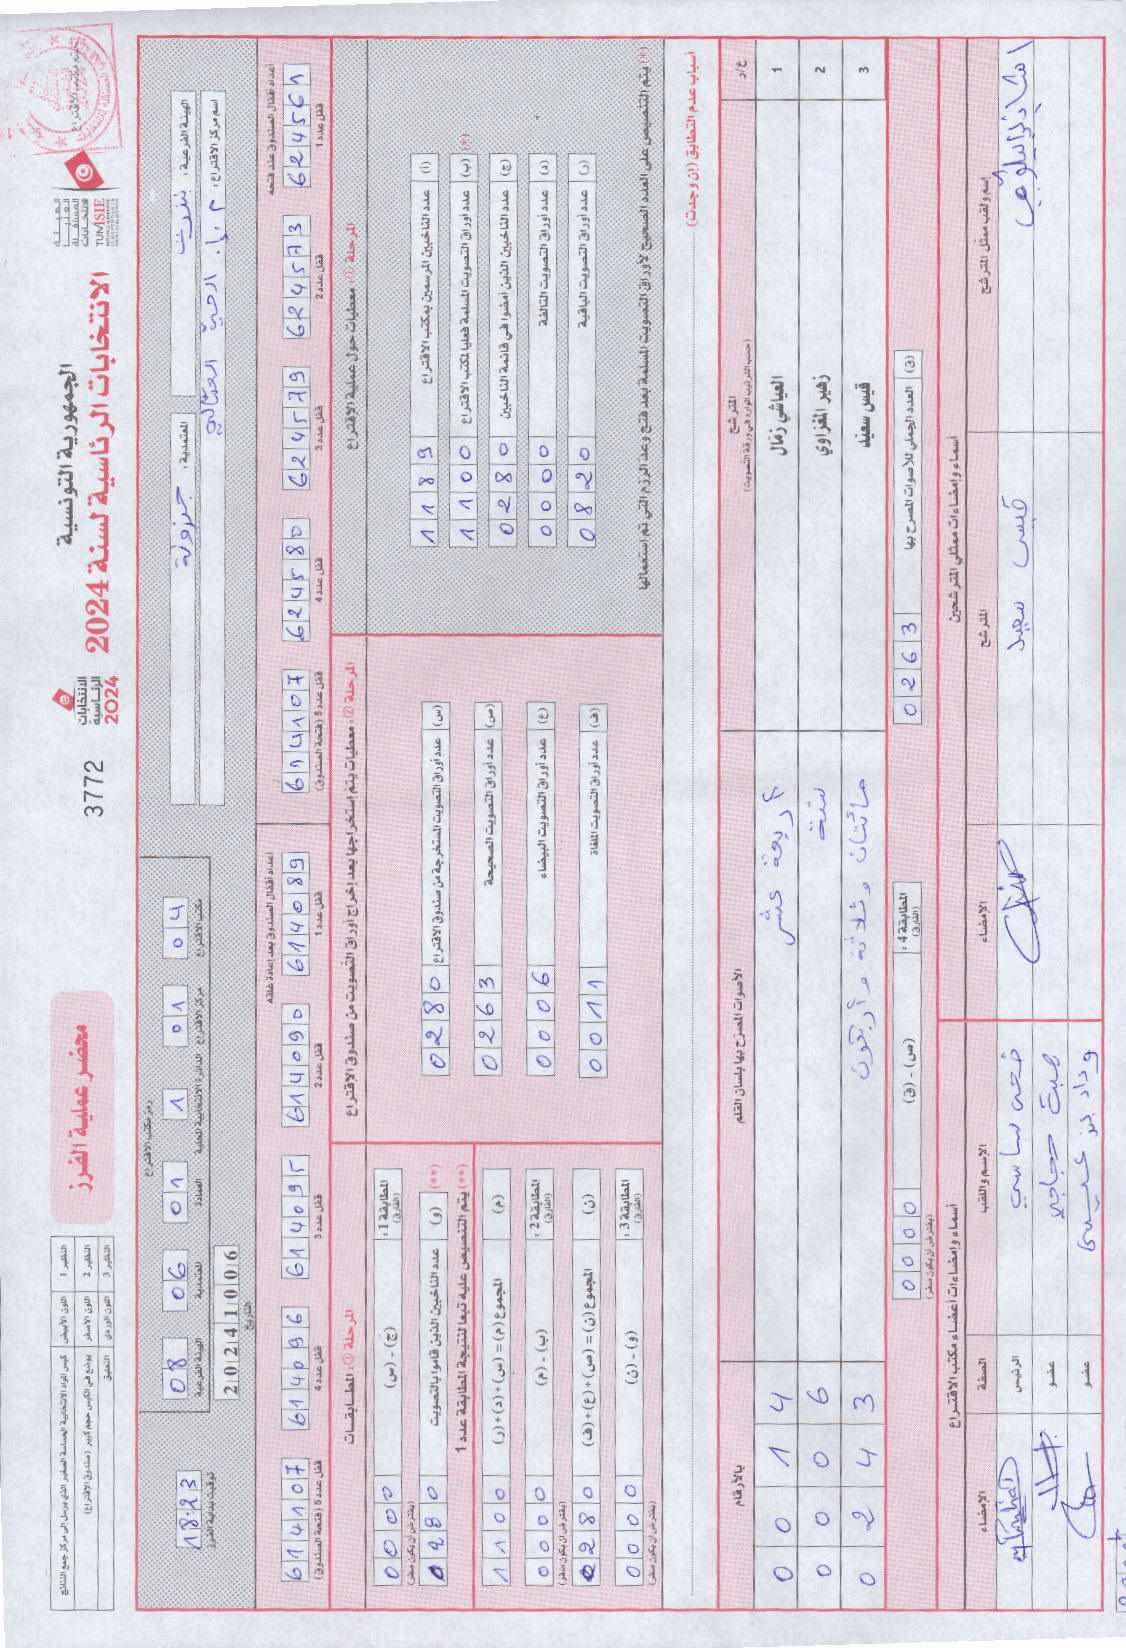 الجمهورية التونسية
الانتخابات الرئاسية لسنة 2024
الهيئة
العليا
المستقلة
للانتخابات
TUNISIE
الانتخابات
الرئاسية
2024
3772
محضر عملية الفرز
النظير 1 اللون الأبيض
النظير 2 اللون الأصفر يوضع في الكيس حجم كبير (صندوق الاقتراع)
النظير 3 اللون الوردي التعليق
الهيئة الفرعية: بنزرت
المعتمدية: جرزونة
اسم مركز الاقتراع:
رمز مكتب الاقتراع
الهيئة الفرعية 08
المعتمدية 06
العمادة 01
الدائرة الانتخابية المحلية 1
مركز الاقتراع 01
مكتب الاقتراع 04
التاريخ 20241006
توقيت بداية الفرز 18:23
أعداد أقفال الصندوق عند فتحه
قفل عدد 1 624561
قفل عدد 2 624573
قفل عدد 3 624579
قفل عدد 4 624580
قفل عدد 5 (فتحة الصندوق) 614107
أعداد أقفال الصندوق بعد إعادة غلقه
قفل عدد 1 614089
قفل عدد 2 614090
قفل عدد 3 614095
قفل عدد 4 614096
قفل عدد 5 (فتحة الصندوق) 614107
المرحلة ①: معطيات حول عملية الاقتراع
(أ) عدد الناخبين المرسمين بمكتب الاقتراع 1189
(ب) عدد أوراق التصويت المسلمة فعليا لمكتب الاقتراع 1100 (*)
(ج) عدد الناخبين الذين أمضوا في قائمة الناخبين 0280
(د) عدد أوراق التصويت التالفة 0000
(ر) عدد أوراق التصويت الباقية 0820
(*) يتم التنصيص على العدد الصحيح لأوراق التصويت المسلمة بعد فتح وعد الرزم التي تم استعمالها
المرحلة ②: معطيات يتم استخراجها بعد إخراج أوراق التصويت من صندوق الاقتراع
(س) عدد أوراق التصويت المستخرجة من صندوق الاقتراع 0280
(ص) عدد أوراق التصويت الصحيحة 0263
(ع) عدد أوراق التصويت البيضاء 0006
(ف) عدد أوراق التصويت الملغاة 0011
المرحلة ③: المطابقات
المطابقة 1: (الفارق) (ج) - (س) 0000 (يفترض أن يكون صفر)
(و) عدد الناخبين الذين قاموا بالتصويت 0280 (**)
(**) يتم التنصيص عليه تبعا لنتيجة المطابقة عدد 1
(م) المجموع (م) = (س)+(د)+(ر) 1100
المطابقة 2: (الفارق) (ب) - (م) 0000 (يفترض أن يكون صفر)
(ن) المجموع (ن) = (ص)+(ع)+(ف) 0280
المطابقة 3: (الفارق) (و) - (ن) 0000 (يفترض أن يكون صفر)
أسباب عدم التطابق (إن وجدت)
ع/د المترشح (حسب الترتيب الوارد في ورقة التصويت) الأصوات المصرح بها بلسان القلم بالأرقام
1 العياشي زمّال أربعة عشر 0014
2 زهير المغزاوي ستة 0006
3 قيس سعيّد مائتان وثلاثة وأربعون 0243
(ق) العدد الجملي للأصوات المصرح بها 0263
المطابقة 4: (الفارق) (ص) - (ق) 0000 (يفترض أن يكون صفر)
أسماء وإمضاءات ممثلي المترشحين
إسم ولقب ممثل المترشح المترشح الإمضاء
قيس سعيد
أسماء وإمضاءات أعضاء مكتب الاقتراع
الاسم واللقب الصفة الإمضاء
الرئيس
عضو
وداد بن عيسى عضو